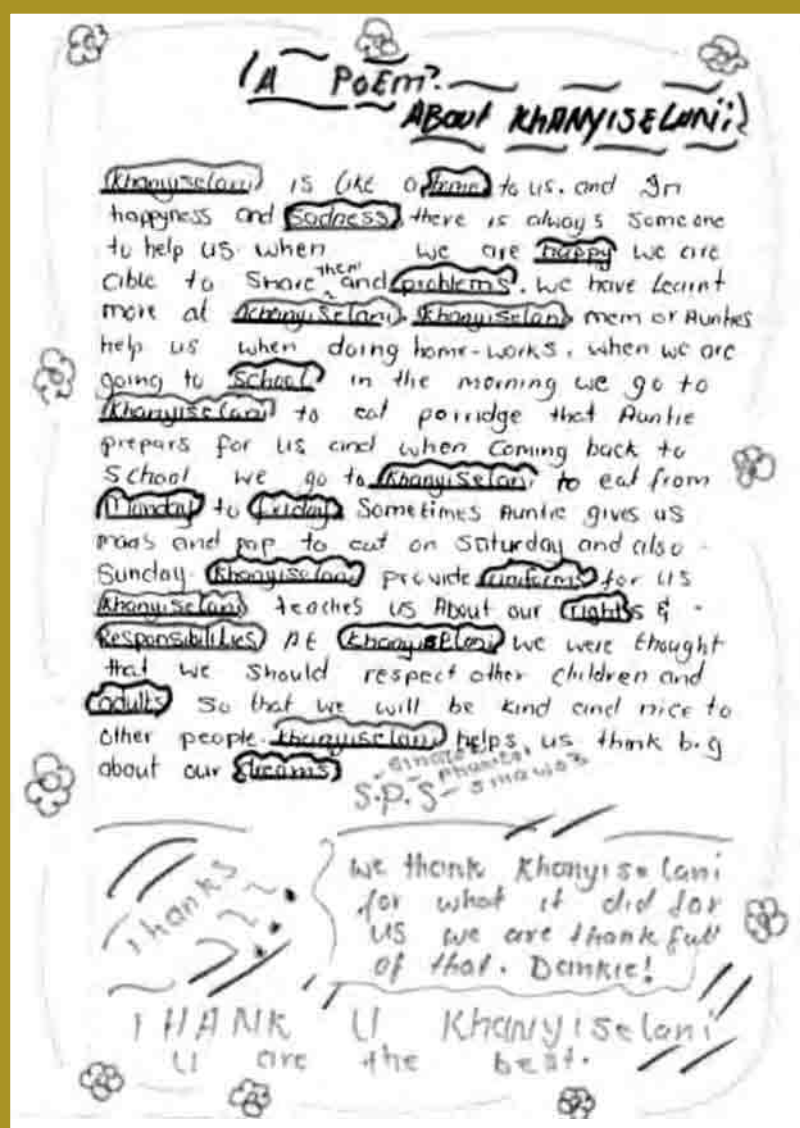 A POEM?
ABOUT KHANYISELANI!
Khanyiselani is like a home to us. and In
happyness and sadness there is always someone
to help us. when we are happy we are
able to share them and problems. we have learnt
more at Khanyiselani. Khanyiselani mem or Aunties
help us when doing home-works. when we are
going to school in the morning we go to
Khanyiselani to eat porridge that Auntie
prepars for us and when coming back to
school we go to Khanyiselani to eat from
Monday to Friday Sometimes Auntie gives us
maas and pap to eat on Saturday and also -
Sunday. Khanyiselani provide uniforms for us
Khanyiselani teaches us About our rights & -
Responsibilities At Khanyiselani we were thought
that we should respect other children and
adults so that we will be kind and nice to
other people. Khanyiselani helps us think big
about our dreams
S.P.S
Thanks
We thank Khanyiselani
for what it did for
us we are thankfull
of that. Dankie!
THANK U Khanyiselani
U are the best.